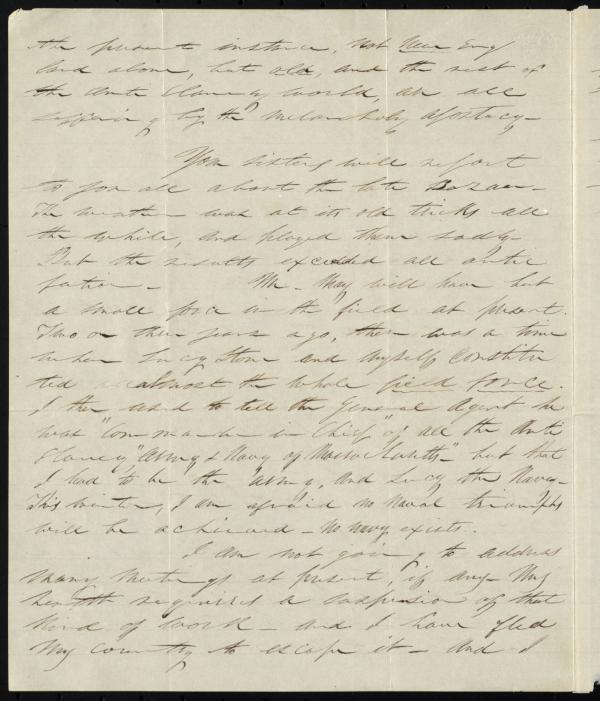 the present instance, not New Eng
land alone, but old, and the rest of
the Anti Slavery world, are all
suffering by the melancholy apostacy—
Your sisters will report
to you all about the late Bazaar—
The weather was at its old tricks all
the while, and played them sadly—
But the results exceeded all antici
pation— Mr. May will have but
a small force in the field at present.
Two or three years ago, there was a time
when Lucy Stone and myself constitu
ted almost the whole field force.
I then used to tell the General Agent he
was "Commander in Chief" of all the Anti
Slavery, "Army & Navy of Massachusetts" but that
I had to be "the Army, and Lucy the Navy—
This winter, I am afraid no naval triumphs
will be achieved— No navy exists.
I am not going to address
many meetings at present, if any— My
health requires a suspension of that
kind of work— and I have fled
my country to escape it— And I